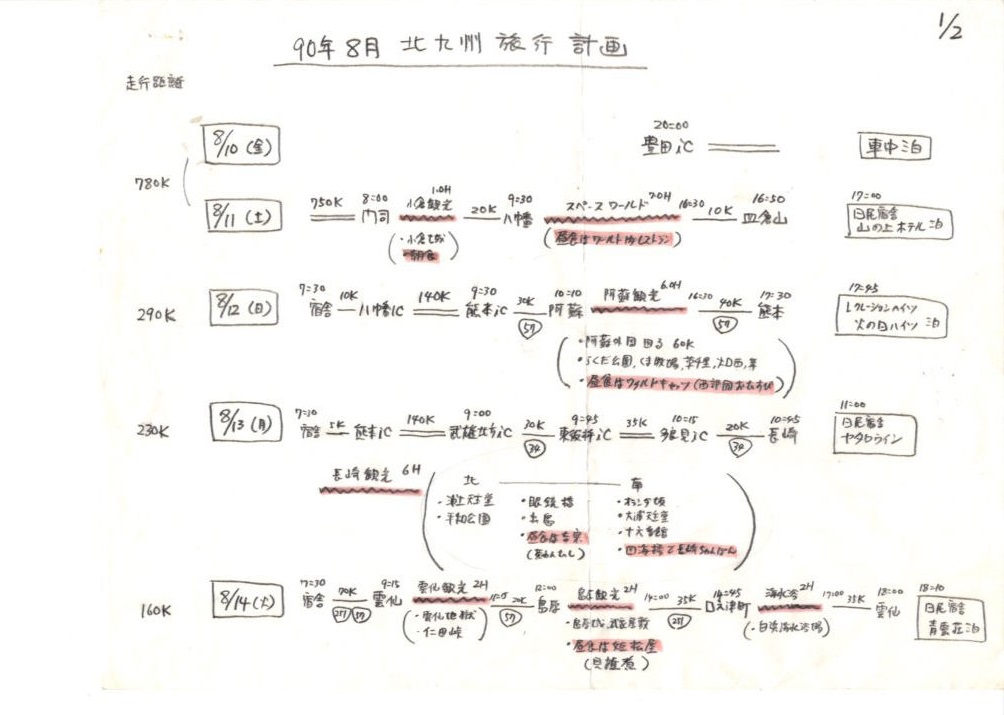 1/2
90年8月 北九州 旅行 計画
走行距離
780K
8/10 (金) 20:00 豊田iC 車中泊
8/11 (土) 750K 8:00 門司 小倉観光 1.0H 20K 9:30 八幡 スペースワールド 7.0H 16:30 10K 16:50 皿倉山 17:00 日尾宿舎
山の上ホテル 泊
・小倉城
・朝食
昼食はワールド内レストラン
290K 8/12 (日) 7:30 宿舎 10K 八幡IC 140K 9:30 熊本iC 30K 57 10:10 阿蘇 阿蘇観光 6.0H 16:30 40K 57 17:30 熊本 17:45 レクレーションハイツ
火の国ハイツ 泊
・阿蘇外回 回る 60K
・らくだ公園, くま牧場, 草千里
・昼食はワイルドキャッツ
230K 8/13 (月) 7:30 宿舎 5K 熊本iC 140K 9:00 iC 30K 34 9:45 iC 35K 10:15 多良見iC 20K 34 10:45 長崎 11:00 日尾宿舎
長崎観光 6H 北 南
・浦上天主堂 ・眼鏡橋 ・オランダ坂
・平和公園 ・出島 ・大浦天主堂
・昼食は吉宗 ・十六番館
(茶わんむし) ・四海樓で長崎ちゃんぽん
160K 8/14 (火) 7:30 宿舎 70K 251 57 9:15 雲仙 雲仙観光 2H 20K 57 12:00 島原 島原観光 2H 14:00 35K 251 14:45 口之津町 海水浴 2H 17:00 35K 18:00 雲仙 18:10 日尾宿舎
青雲荘 泊
・雲仙地獄 ・島原城, 武家屋敷 ・白浜海水浴場
・仁田峠
・昼食は姫松屋
(具雑煮)